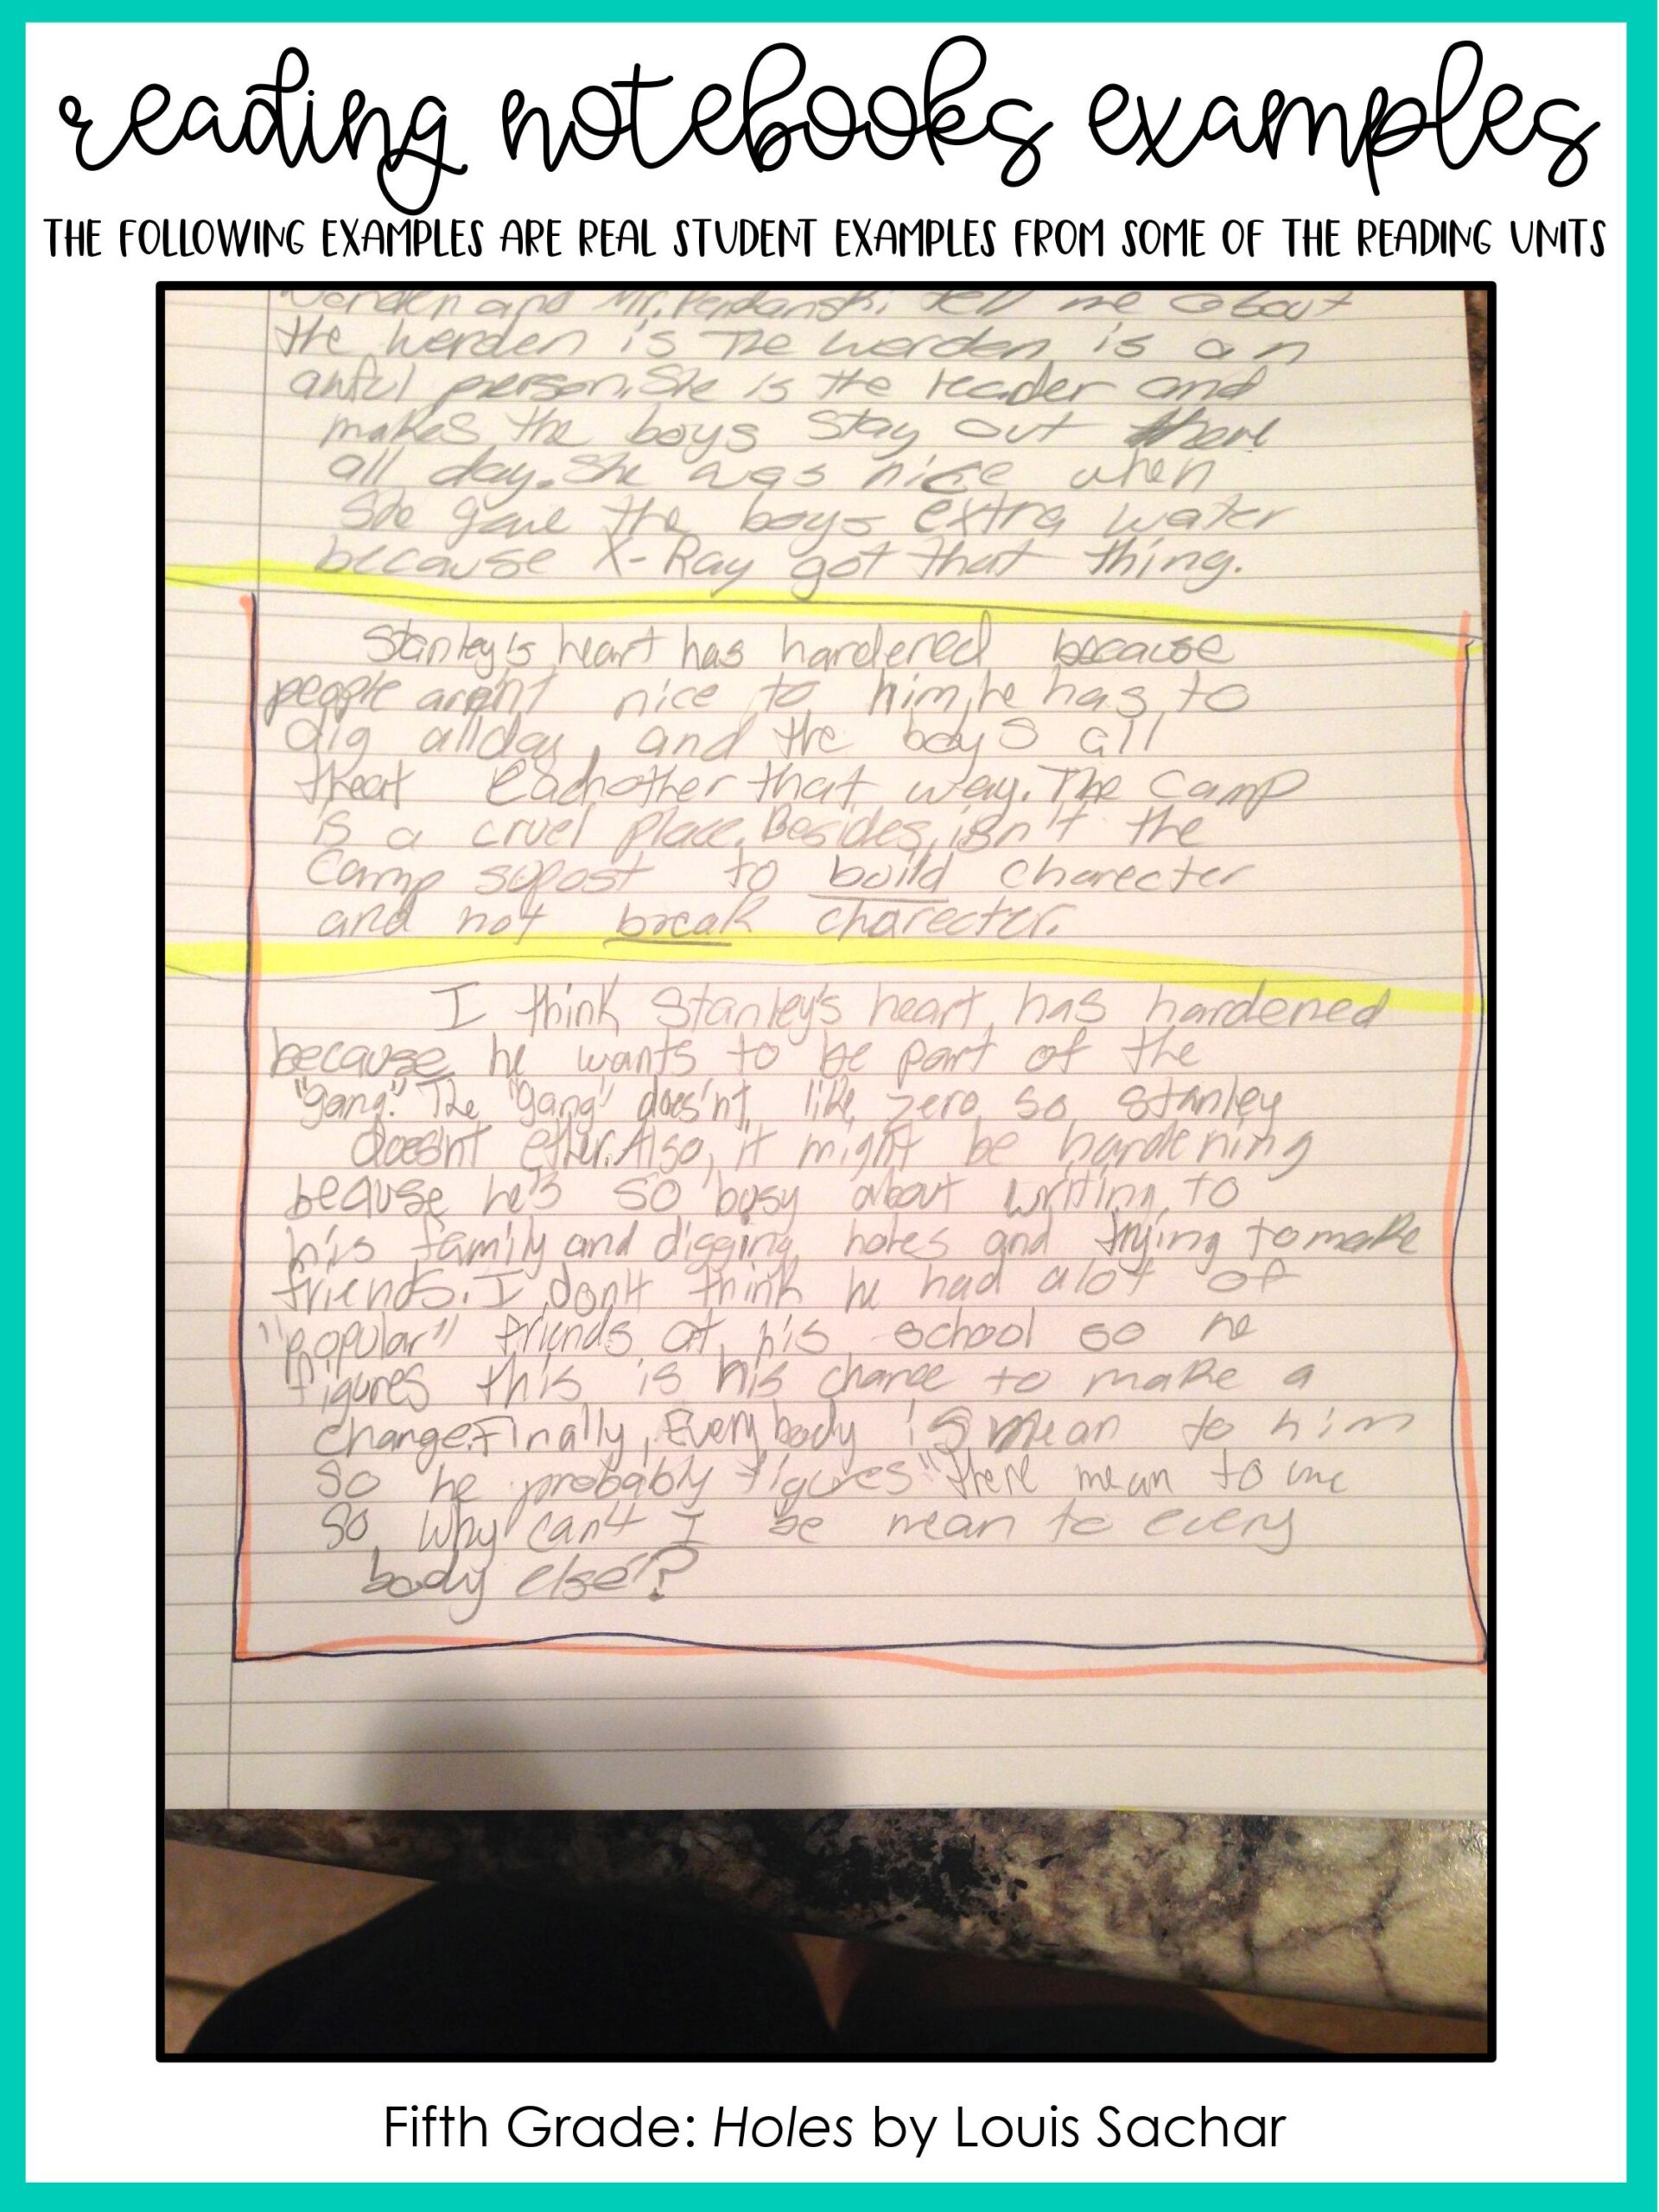 reading notebooks examples
THE FOLLOWING EXAMPLES ARE REAL STUDENT EXAMPLES FROM SOME OF THE READING UNITS
Werden and Mr. Pendanski tell me about
the werden is The werden is an
awful person. She is the leader and
makes the boys stay out there
all day. She was nice when
She gave the boys extra water
because X-Ray got that thing.
Stanley's heart has hardened because
people aren't nice to him, he has to
dig allday, and the boys all
treat eachother that way. The camp
is a cruel place. Besides, isn't the
Camp sopost to build charecter
and not break charecter.
I think Stanley's heart has hardened
because he wants to be part of the
"gang". The "gang" does'nt like zero so stanley
doesn't ether. Also, it might be hardening
beause he's so busy about writing to
his family and digging holes and trying to make
friends. I don't think he had alot of
"popular" friends at his school so he
figures this is his chance to make a
change. Finally, Everybody is mean to him
So he probably figures "there mean to me
so why can't I be mean to every
body else"?
Fifth Grade: Holes by Louis Sachar